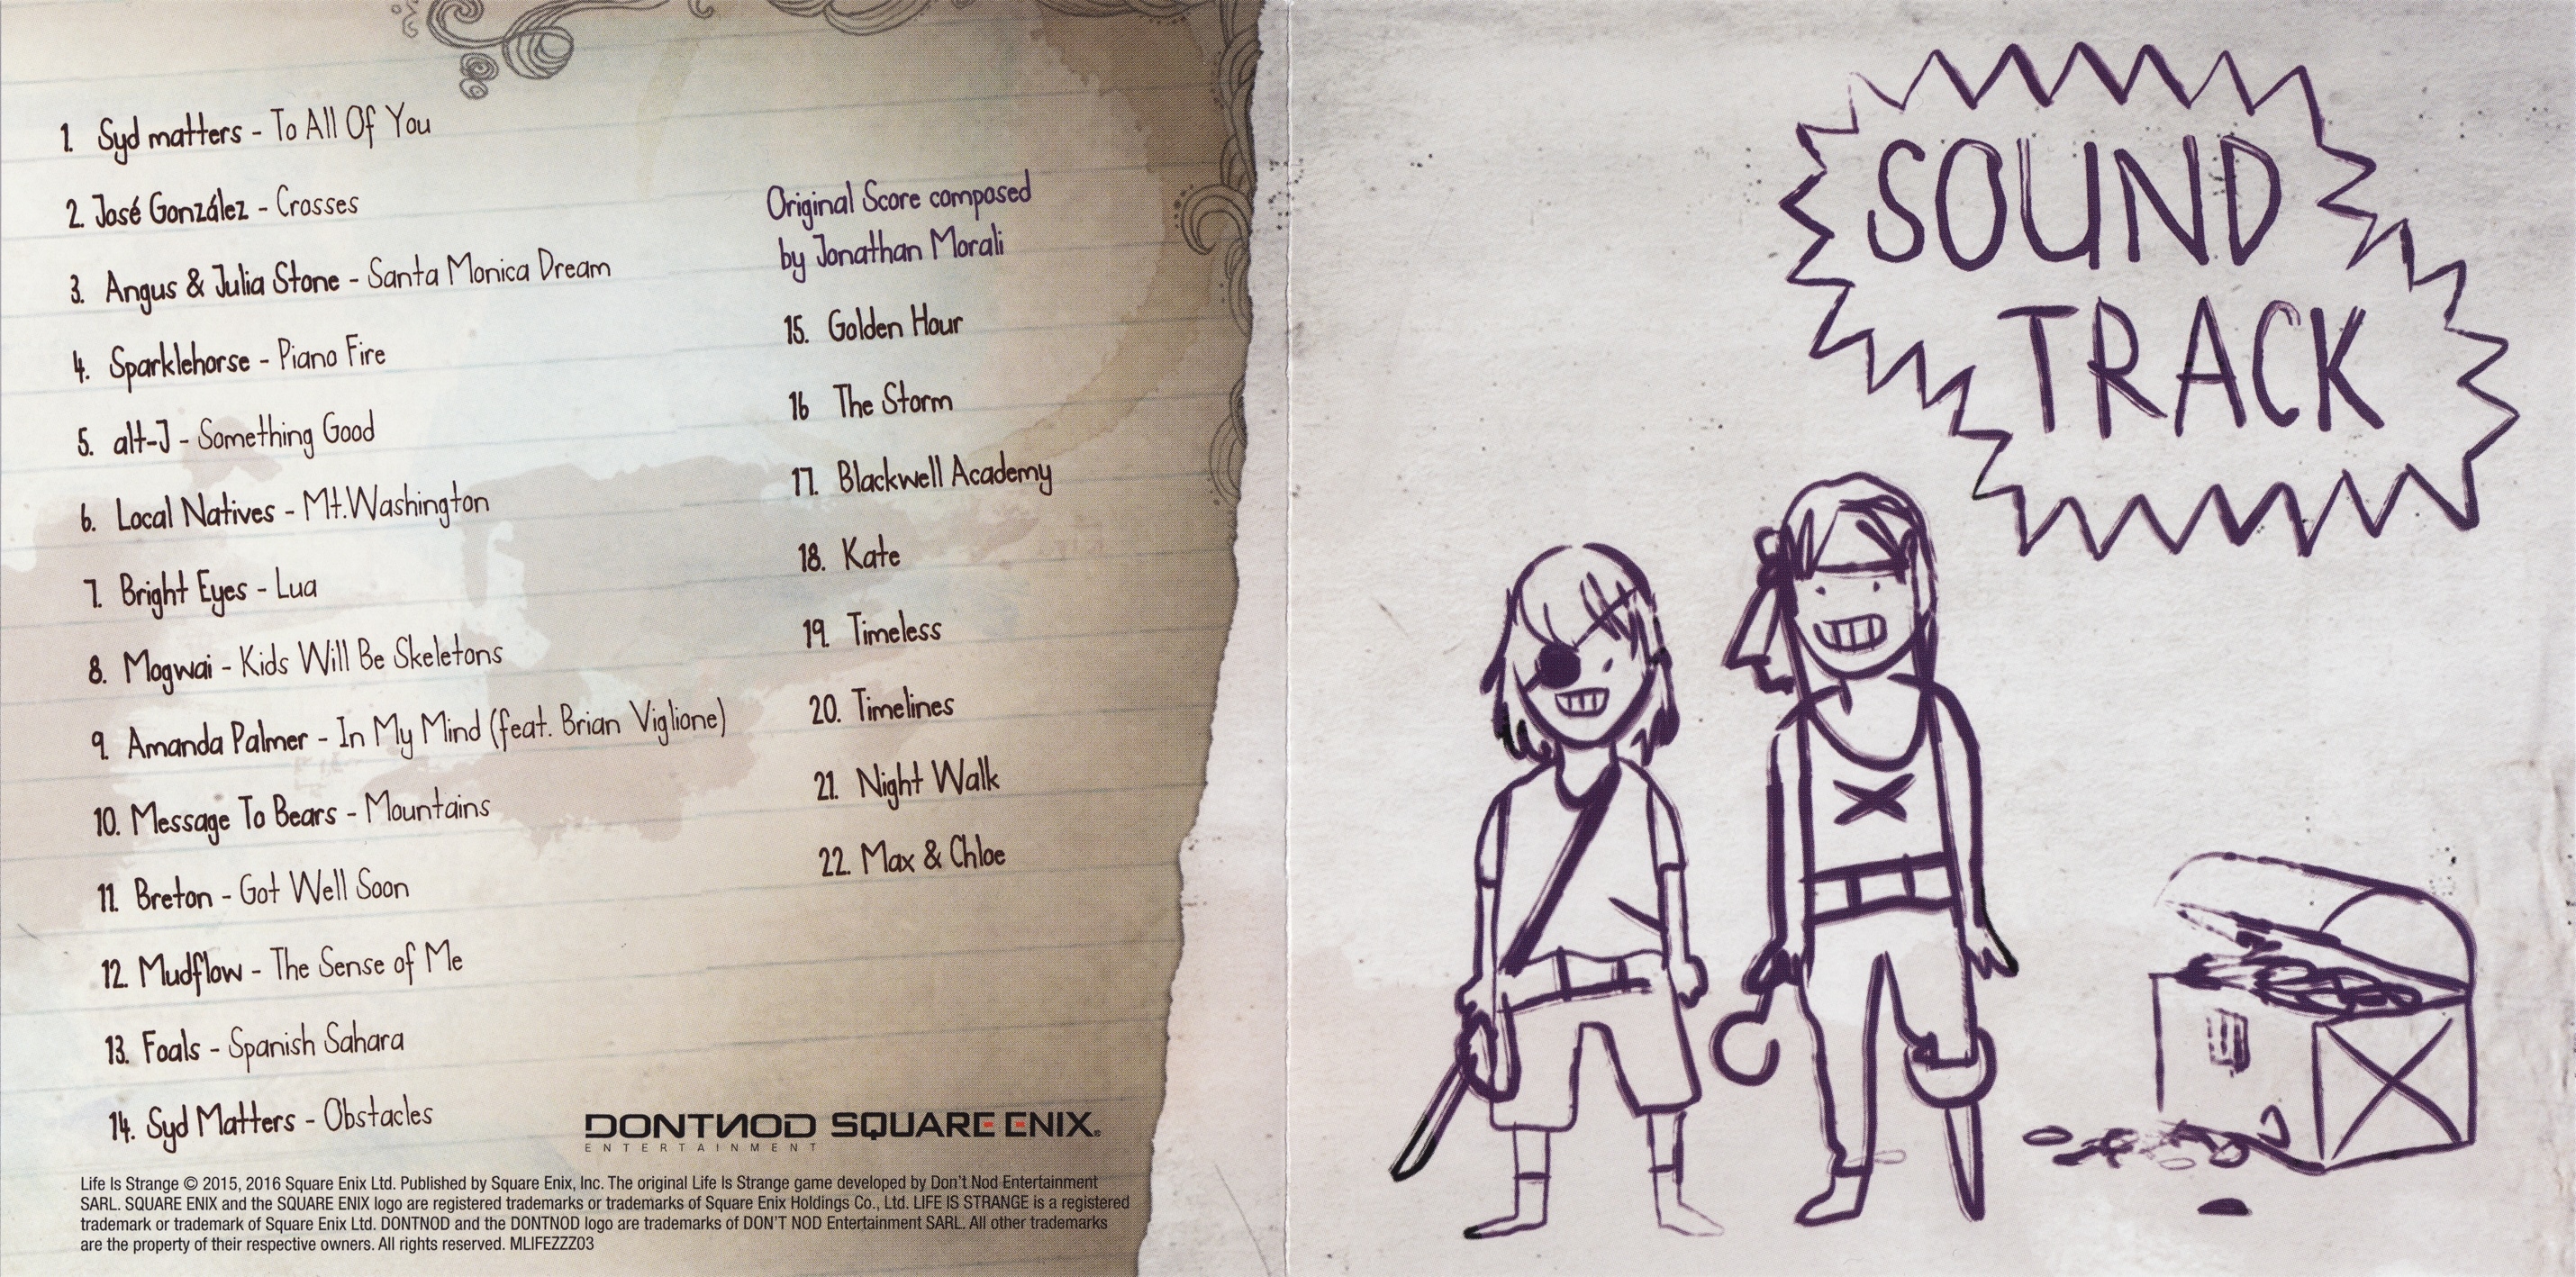 1. Syd matters - To All Of You
2. José González - Crosses
3. Angus & Julia Stone - Santa Monica Dream
4. Sparklehorse - Piano Fire
5. alt-J - Something Good
6. Local Natives - Mt.Washington
7. Bright Eyes - Lua
8. Mogwai - Kids Will Be Skeletons
9. Amanda Palmer - In My Mind (feat. Brian Viglione)
10. Message To Bears - Mountains
11. Breton - Got Well Soon
12. Mudflow - The Sense of Me
13. Foals - Spanish Sahara
14. Syd Matters - Obstacles
Original Score composed
by Jonathan Morali
15. Golden Hour
16 The Storm
17. Blackwell Academy
18. Kate
19. Timeless
20. Timelines
21. Night Walk
22. Max & Chloe
DONTNOD
ENTERTAINMENT
SQUARE ENIX.
Life Is Strange © 2015, 2016 Square Enix Ltd. Published by Square Enix, Inc. The original Life Is Strange game developed by Don't Nod Entertainment
SARL. SQUARE ENIX and the SQUARE ENIX logo are registered trademarks or trademarks of Square Enix Holdings Co., Ltd. LIFE IS STRANGE is a registered
trademark or trademark of Square Enix Ltd. DONTNOD and the DONTNOD logo are trademarks of DON'T NOD Entertainment SARL. All other trademarks
are the property of their respective owners. All rights reserved. MLIFEZZZ03
SOUND
TRACK